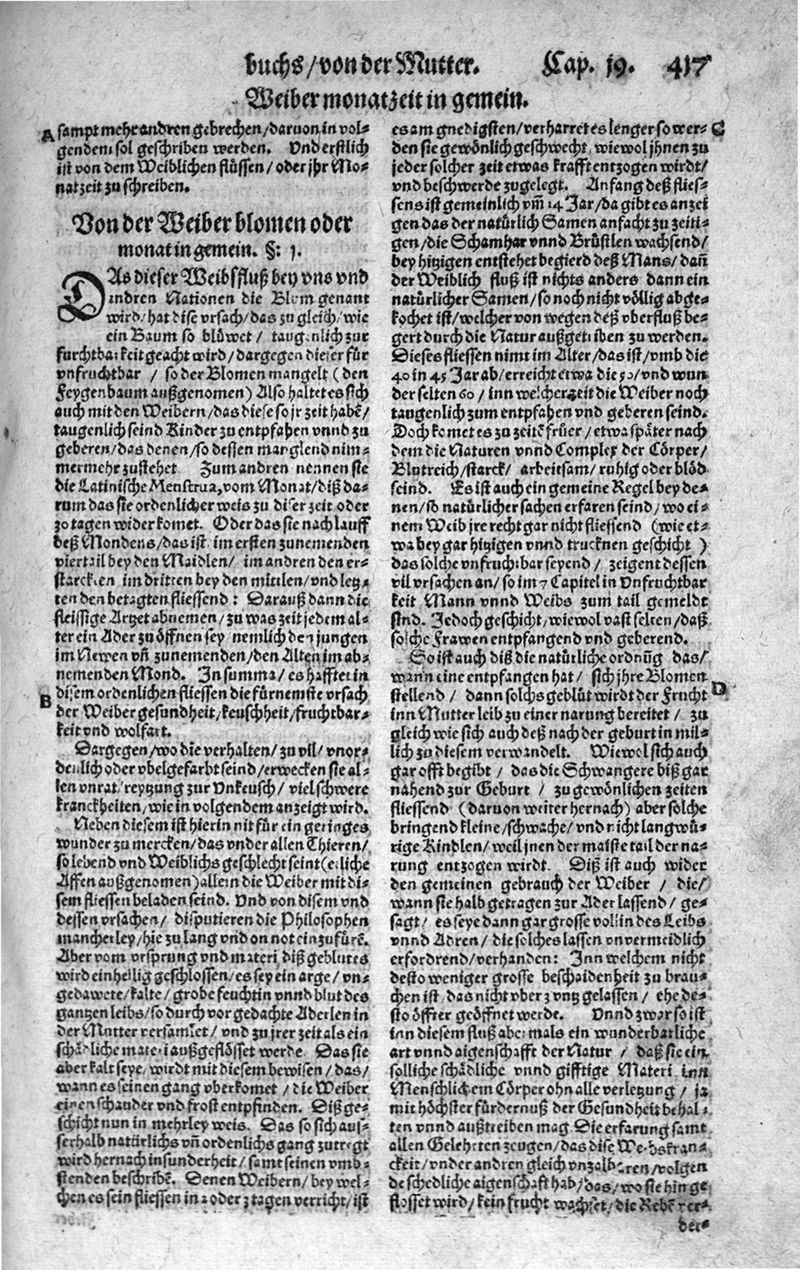 buchs/von der Mutter. Cap. 19. 417
Weiber monatzeit in gemein.
A
sampt mehr andren gebrechen/daruon in vol-
gendem sol geschriben werden. Vnd erstlich
ist von dem Weiblichen flüssen/oder jhr Mo-
natzeit zu schreiben.
Von der Weiber blomen oder
monat in gemein. §: 1.
DAs dieser Weibsfluß bey vns vnd
andren Nationen die Blum genant
wird/hat dise vrsach/das zu gleich/wie
ein Baum so blüwet/ taugenlich zur
furchtbarkeit geacht wird/dargegen dieser für
vnfruchtbar / so der Blomen mangelt (den
Feygenbaum außgenomen) Also haltet es sich
auch mit den Weibern/das diese so jr zeit habē/
taugenlich seind Kinder zu entpfahen vnnd zu
geberen/das denen/so dessen manglend nim-
mermehr zustehet Zum andren nennen sie
die Latinische Menstrua, vom Monat/diß da-
rum das sie ordenlicher weis zu diser zeit oder
zo tagen wider komet. Oder das sie nach lauff
deß Mondens/das ist im ersten zunemenden
viertail bey den Maidlen/ im andren den er-
starckten im dritten bey den mitlen/vnd letz-
ten den betagten fliessend: Darauß dann die
fleissige Artzet abnemen/zu was zeit jedem al-
ter ein Ader zu öffnen sey/nemlich den jungen
im Newen vñ zunemenden/den Alten im ab-
nemenden Mond. In summa/es hafftet in
B
disem ordenlichen fliessen die fürnemste vrsach
der Weiber gesundheit/keuschheit/fruchtbar-
keit vnd wolfart.
Dargegen/wo die verhalten/zu vil/vnor-
denlich oder vbelgefarbt seind/erwecken sie al-
len vnrat/reytzung zur Vnkeusch/viel schwere
kranckheiten/wie in volgendem anzeigt wird.
Neben diesem ist hierin nit für ein geringes
wunder zu mercken/das vnder allen Thieren/
so lebend vnd Weiblichs geschlecht seint(etliche
Affen außgenomen)allein die Weiber mit di-
sem fliessen beladen seind. Vnd von disem vnd
dessen vrsachen/ disputieren die Philosophen
mancherley/hie zu lang vnd on not einzufürē.
Aber vom vrsprung vnd materi diß geblutes
wird einhellig geschlossen/es sey ein arge/vn-
gedawete/kalte/grobe feuchtin vnnd blut des
gantzen leibs/so durch vor gedachte Aderlen in
der Mutter versamlet/vnd zu jrer zeit als ein
schädliche materi außgeflösset werde. Das sie
aber kalt seye/wirdt mit diesem bewisen/das/
wann es seinen gang vberkomet/die Weiber
einen schauder vnd frost entpfinden. Diß ge-
schicht nun in mehrley weis. Das so sich aus-
serhalb natürlichs vñ ordenlichs gang zutregt
wird hernach in sunderheit/samt seinen vmb-
stenden beschribē. Denen Weibern/bey wel-
chen es sein fliessen in 2 oder 3 tagen verricht/ist
C
es am gnedigsten/verharret es lenger so wer-
den sie gewönlich geschwecht, wiewol jhnen zu
jeder solcher zeit etwas krafft entzogen wirdt/
vnd beschwerde zugelegt. Anfang deß flies-
sens ist gemeinlich vm̄ 14 Jar/da gibt es anzei
gen das der natürlich Samen anfacht zu zeiti-
gen/die Schamhar vnnd Brüstlen wachsend/
bey hitzigen entstehet begierd deß Mans/dañ
der Weiblich fluß ist nichts anders dann ein
natürlicher Samen/so noch nicht völlig abge-
kochet ist/welcher von wegen deß vberfluß be-
gert durch die Natur außgetriben zu werden.
Dieses fliessen nimt im Alter/das ist/vmb die
40 in 45 Jar ab/erreicht etwa die 50/vnd wun
der selten 60/ inn welcher zeit die Weiber noch
taugenlich zum entpfahen vnd geberen seind.
Doch komet es zu zeitē früer/etwa später nach
dem die Naturen vnnd Complex der Cörper/
Blutreich/starck/ arbeitsam/ruhig oder blöd
seind. Es ist auch ein gemeine Regel bey de-
nen/so natürlicher sachen erfaren seind/wo ei-
nem Weib jre recht gar nicht fliessend (wie et-
wa bey gar hitzigen vnnd trucknen geschicht )
das solche vnfruchtbar seyend/ zeigent dessen
vil vrsachen an/so im 7 Capitel in Vnfruchtbar
keit Mann vnnd Weibs zum tail gemeldt
sind. Jedoch geschicht/wiewol vast selten/daß
solche Frawen entpfangend vnd geberend.
So ist auch diß die natürliche ordnūg das/
wann eine entpfangen hat/ sich jhre Blomen
D
stellend / dann solchs geblüt wirdt der Frucht
inn Mutter leib zu einer narung bereitet / zu
gleich wie sich auch deß nach der geburt in mil-
lich zu diesem verwandelt. Wiewol sich auch
gar offt begibt / das die Schwangere biß gar
nahend zur Geburt / zu gewönlichen zeiten
fliessend (daruon weiter hernach) aber solche
bringend kleine/schwache/vnd nicht langwü-
rige Kindlen/weil jnen der maiste tail der na-
rung entzogen wirdt. Diß ist auch wider
den gemeinen gebrauch der Weiber / die/
wann sie halb getragen zur Ader lassend/ ge-
sagt/ es seye dann gar grosse völlin des Leibs
vnnd Adren/ die solches lassen vnvermeidlich
erfordrend/verhanden: Inn welchem nicht
desto weniger grosse bescheidenheit zu brau-
chen ist/das nicht vber 3 vntz gelassen/ ehe de-
sto öffter geöffnet werde. Vnnd zwar so ist
inn diesem fluß abermals ein wunderbarliche
art vnnd aigenschafft der Natur / daß sie ein
solliche schädliche vnnd gifftige Materi inn
Menschlichem Cörper ohn alle verletzung/ ja
mit höchster fürdernuß der Gesundheit behal-
ten vnnd außtreiben mag. Die erfarung samt
allen Gelehrten zeugen/das dise Weibskran-
ckeit/vnder andren gleich vnzalbaren/volgen
de schedliche aigenschafft hab/das/wo sie hin ge
flosset wird/kein frucht wachset/die Rebē ver-
der-